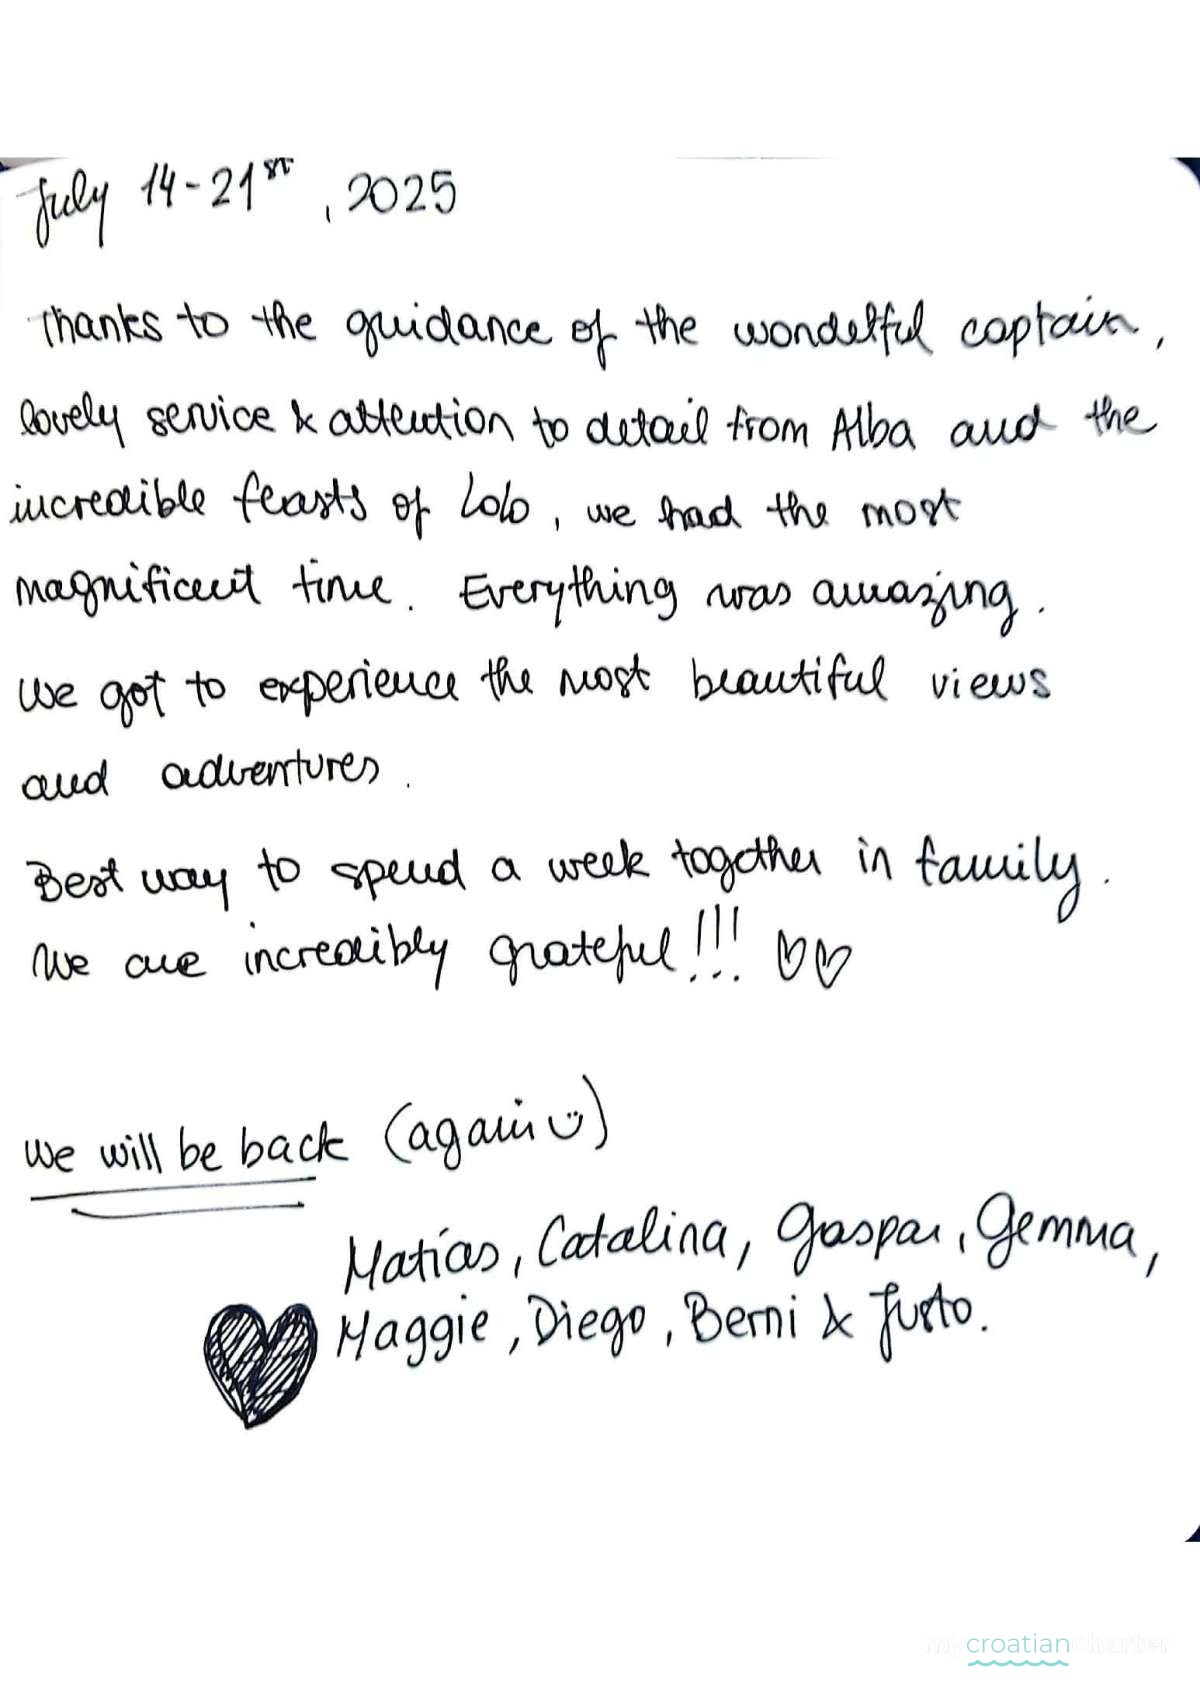 July 14-21st, 2025
Thanks to the guidance of the wonderful captain,
lovely service & attention to detail from Alba and the
incredible feasts of Lolo, we had the most
magnificent time. Everything was amazing.
We got to experience the most beautiful views
and adventures.
Best way to spend a week together in family.
We are incredibly grateful!!! ♡♡
We will be back (again ☺)
Matías, Catalina, Gaspar, Gemma,
Maggie, Diego, Berni & Justo.
mycroatiancharter